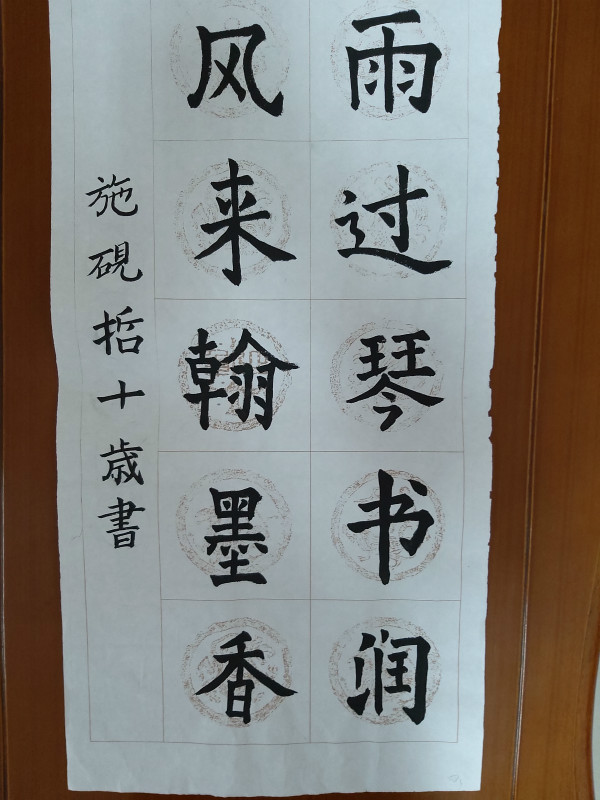 雨过琴书润
风来翰墨香
施硯哲十歳書